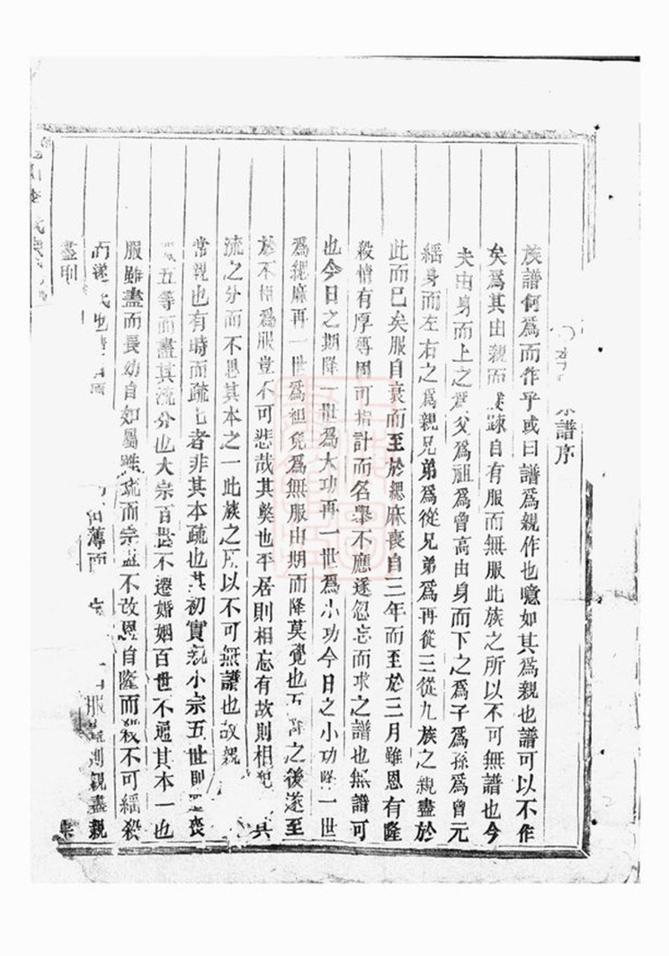 譜序
族譜何爲而作乎或曰譜爲親作也噫如其爲親也譜可以不作
矣爲其由親而疎自有服而無服此族之所以不可無譜也今
夫由身而上之爲父爲祖爲曾高由身而下之爲子爲孫爲曾元
緦身而左右之爲親兄弟爲從兄弟爲再從三從九族之親盡於
此而已矣服自衰而至於緦麻喪自三年而至於三月雖恩有隆
殺情有厚薄固可指計而名舉不應遂忽忘而求之譜也無譜可
也今日之期降一世爲大功再一世爲小功今日之小功降一世
爲緦麻再一世爲袒免爲無服由期而降莫覺也五降之後遂至
於不相爲服豈不可悲哉其奠也平居則相忘有故則相犯其
流之分而不思其本之一此族之所以不可無譜也故親
常親也有時而疏也者非其本疏也其初實親小宗五世則喪
五等而盡其流分也大宗百世不遷婚姻百世不通其本一也
服雖盡而長幼自如屬雖疏而宗盟不改恩自隆而殺不可緦殺
而遂也薄而服則親盡親
盡則